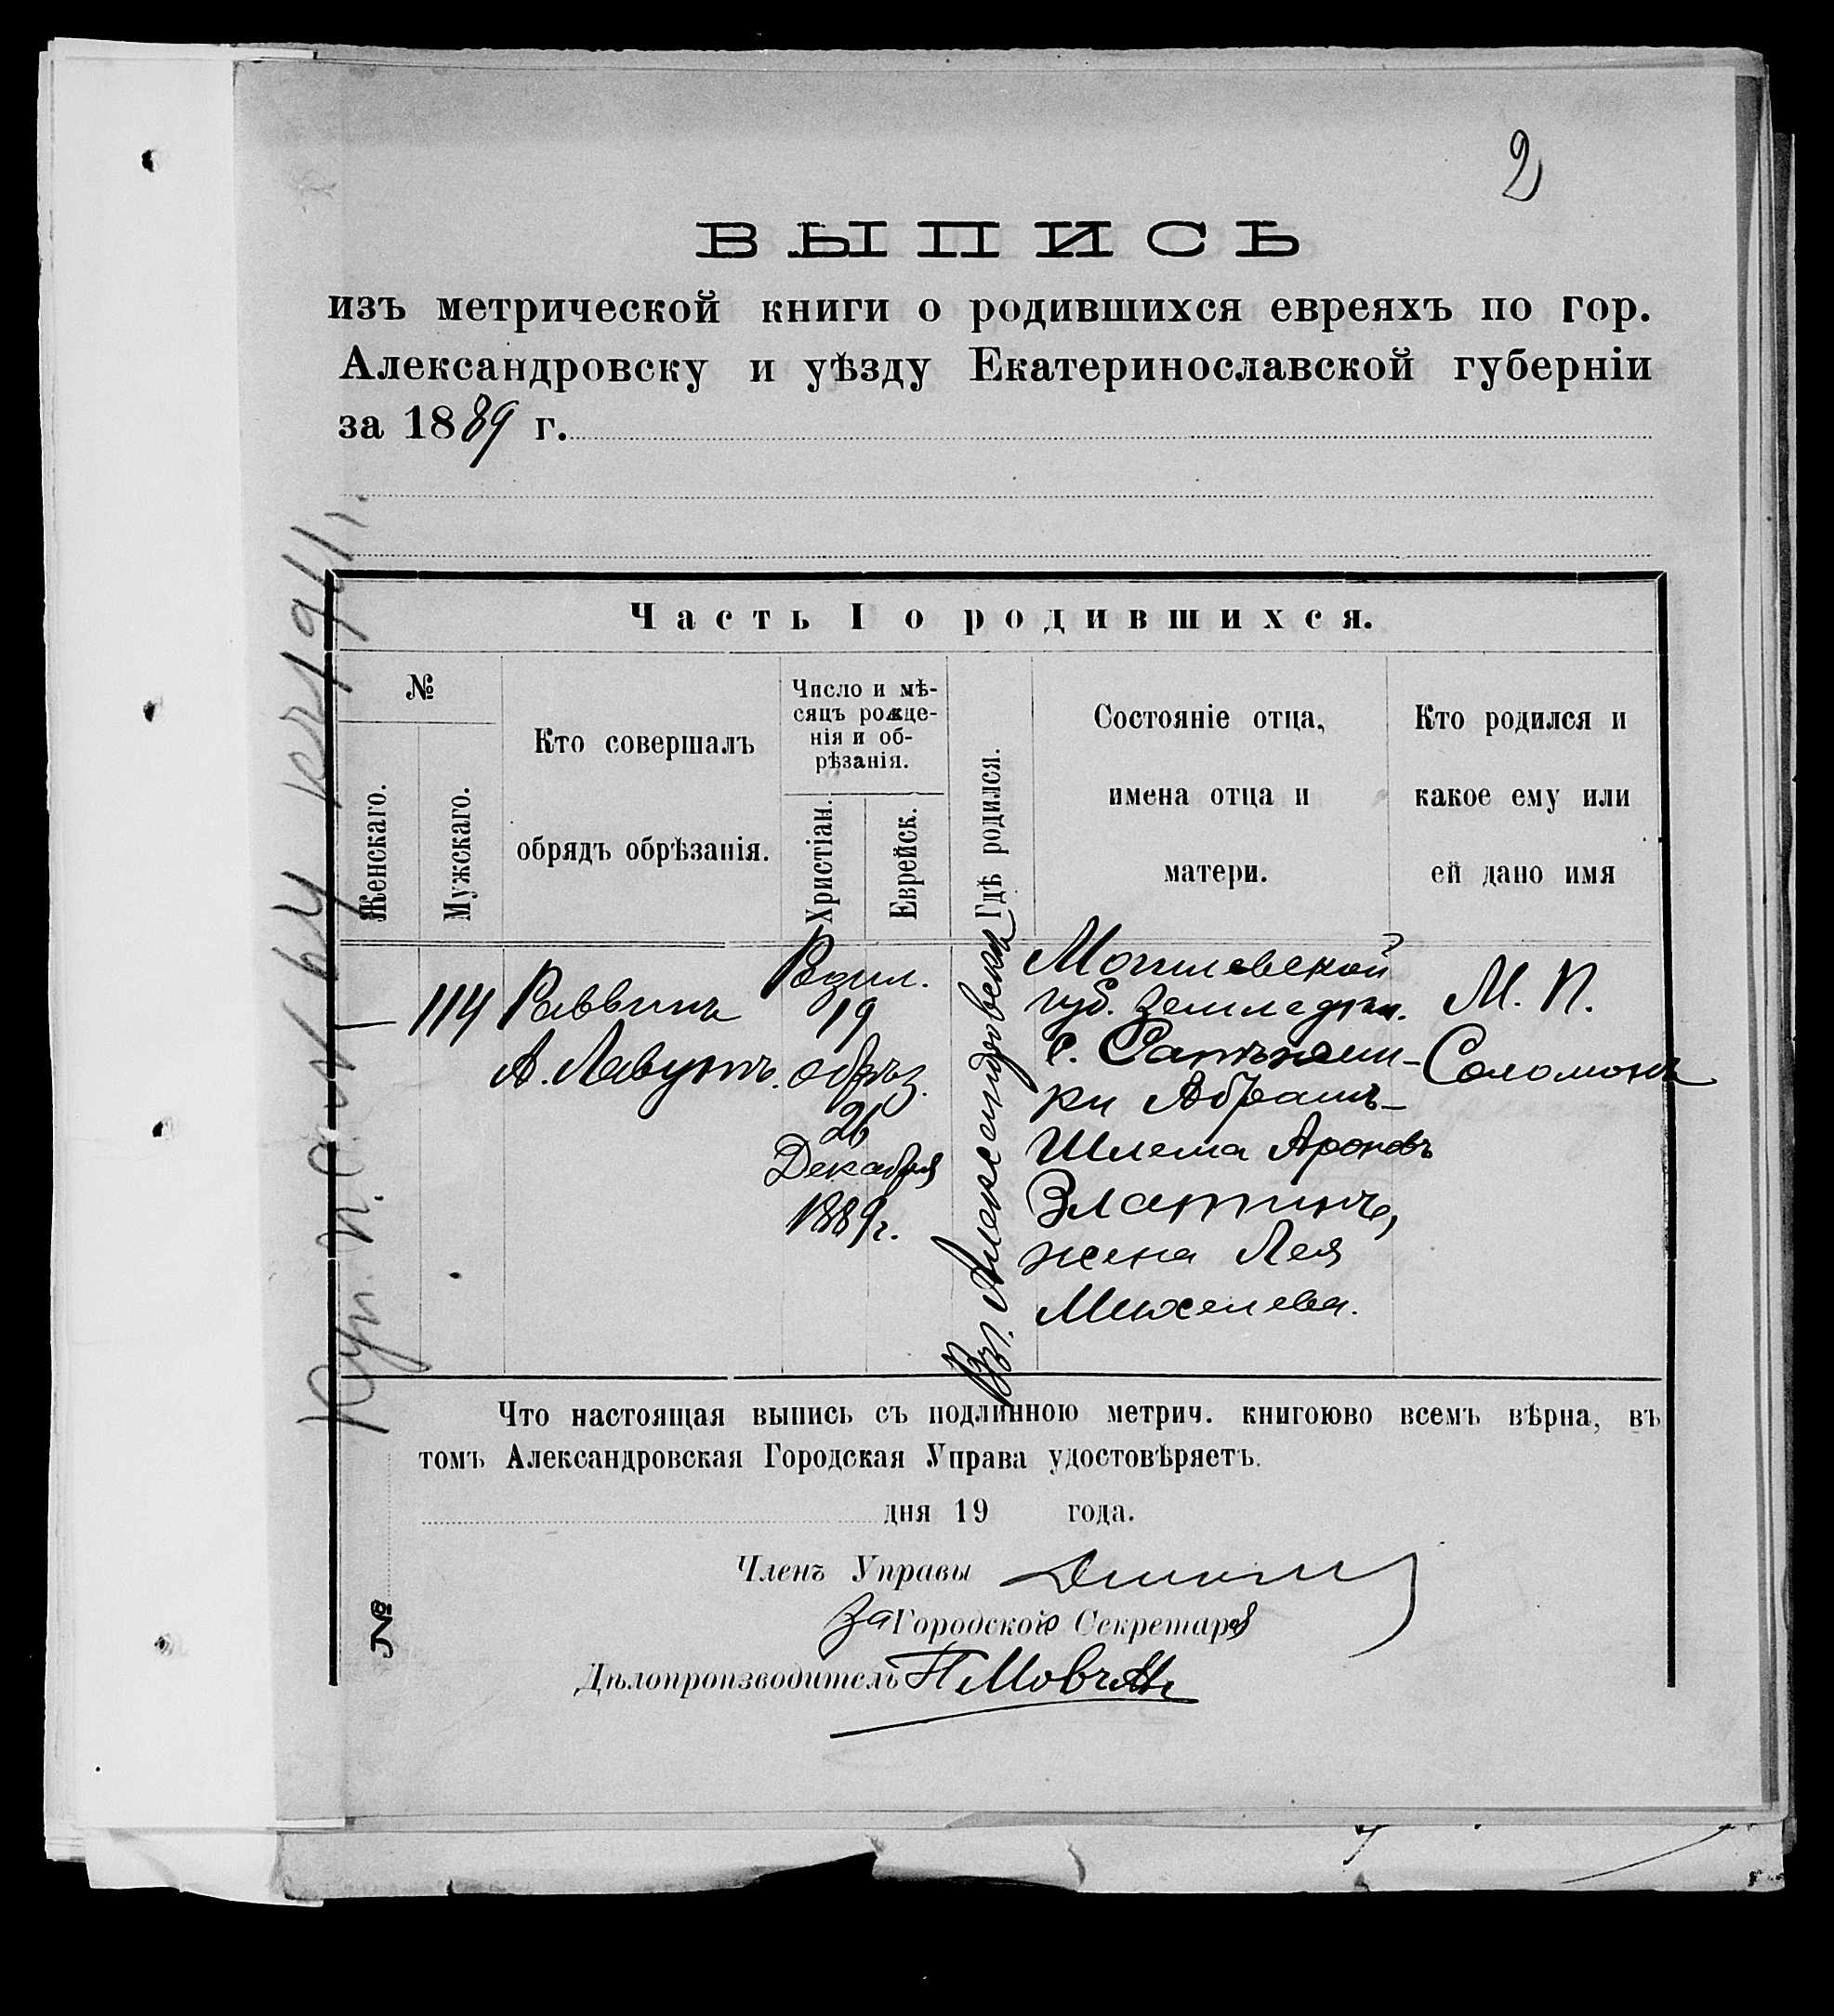 2
ВЫПИСЬ
изъ метрической книги о родившихся евреяхъ по гор.
Александровску и уѣзду Екатеринославской губерніи
за 1889 г.
Часть I о родившихся.
№
Женскаго.
Мужскаго.
Кто совершалъ
обрядъ обрѣзанія.
Число и мѣ-
сяцъ рожде-
нія и об-
рѣзанія.
Христіан.
Еврейск.
Гдѣ родился.
Состояніе отца,
имена отца и
матери.
Кто родился и
какое ему или
ей дано имя
—
114
Раввинъ
А. Лавутъ.
Родил.
19
обрѣз.
26
Декабря
1889 г.
Въ г. Александровскѣ
Могилевской
губ. земледѣл.
с.
ки Абрамъ-
Шлема Ароновъ
Златинъ,
жена Лея
Михелева.
М. П.
Соломонъ
Что настоящая выпись съ подлинною метрич. книгоюво всемъ вѣрна, въ
томъ Александровская Городская Управа удостовѣряетъ.
дня 19 года.
Членъ Управы
За Городского Секретаря
Дѣлопроизводитель П Мовчан
№